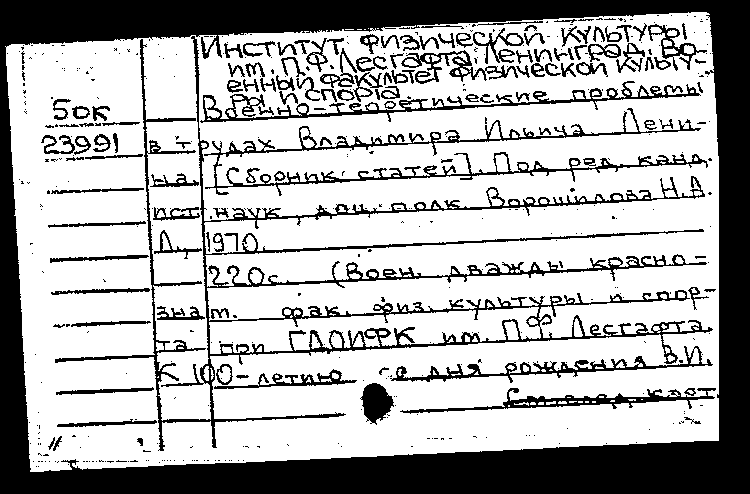 Институт физической культуры
им. П.Ф. Лесгафта. Ленинград. Во-
енный факультет физической культу-
ры и спорта
50к Военно-теоретические проблемы
23991 в трудах Владимира Ильича Лени-
на. [Сборник статей]. Под ред. канд.
ист. наук, доц. полк. Ворошилова Н.А.
Л., 1970.
220с. (Воен. дважды красно=
знам. фак. физ. культуры и спор-
та при ГДОИФК им. П.Ф. Лесгафта.
К 100-летию со дня рождения В.И.